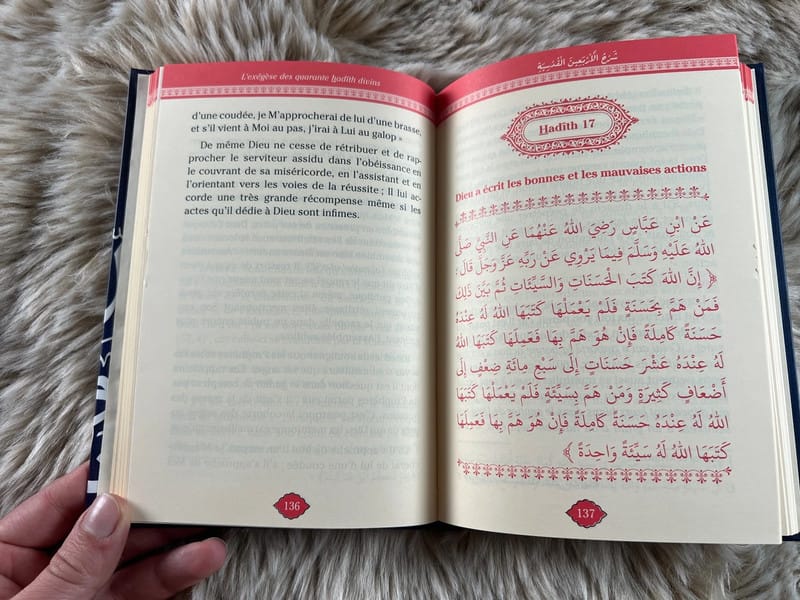 L'exégèse des quarante hadîth divins
d'une coudée, je M'approcherai de lui d'une brasse,
et s'il vient à Moi au pas, j'irai à Lui au galop »
De même Dieu ne cesse de rétribuer et de rap-
procher le serviteur assidu dans l'obéissance en
le couvrant de sa miséricorde, en l'assistant et en
l'orientant vers les voies de la réussite ; Il lui ac-
corde une très grande récompense même si les
actes qu'il dédie à Dieu sont infimes.
136
شَرْحُ الْأَرْبَعِينَ الْقُدْسِيَّة
Hadîth 17
Dieu a écrit les bonnes et les mauvaises actions
عَنْ ابْنِ عَبَّاسٍ رَضِيَ اللهُ عَنْهُمَا عَنِ النَّبِيِّ صَلَّى
اللهُ عَلَيْهِ وَسَلَّمَ فِيمَا يَرْوِي عَنْ رَبِّهِ عَزَّ وَجَلَّ قَالَ :
﴿ إِنَّ اللهَ كَتَبَ الْحَسَنَاتِ وَالسَّيِّئَاتِ ثُمَّ بَيَّنَ ذَلِكَ
فَمَنْ هَمَّ بِحَسَنَةٍ فَلَمْ يَعْمَلْهَا كَتَبَهَا اللهُ لَهُ عِنْدَهُ
حَسَنَةً كَامِلَةً فَإِنْ هُوَ هَمَّ بِهَا فَعَمِلَهَا كَتَبَهَا اللهُ
لَهُ عِنْدَهُ عَشْرَ حَسَنَاتٍ إِلَى سَبْعِ مِائَةِ ضِعْفٍ إِلَى
أَضْعَافٍ كَثِيرَةٍ وَمَنْ هَمَّ بِسَيِّئَةٍ فَلَمْ يَعْمَلْهَا كَتَبَهَا
اللهُ لَهُ عِنْدَهُ حَسَنَةً كَامِلَةً فَإِنْ هُوَ هَمَّ بِهَا فَعَمِلَهَا
كَتَبَهَا اللهُ لَهُ سَيِّئَةً وَاحِدَةً ﴾
137